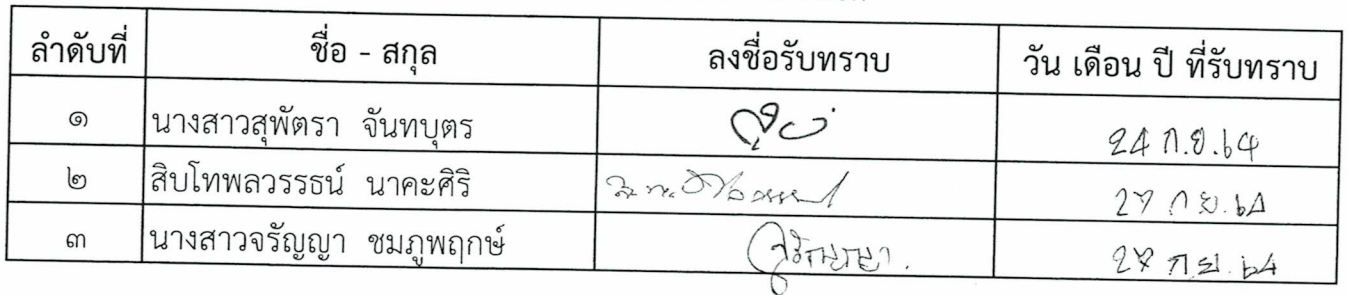 ลำดับที่ ชื่อ - สกุล ลงชื่อรับทราบ วัน เดือน ปี ที่รับทราบ
๑ นางสาวสุพัตรา จันทบุตร 24 ก.ย.64
๒ สิบโทพลวรรธน์ นาคะศิริ 27 ก.ย.64
๓ นางสาวจรัญญา ชมภูพฤกษ์ จรัญญา. 27 ก.ย.64